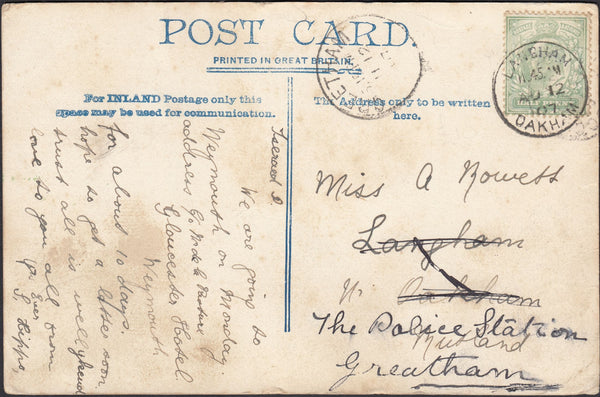 POST CARD.
PRINTED IN GREAT BRITAIN.
For INLAND Postage only this
space may be used for communication.
The Address only to be written
here.
We are going to
Weymouth on Monday.
address
Gloucester Hotel
Weymouth
for about 10 days,
hope to get a letter soon
trust all is well,
love to you all from
LANGHAM
12
07
OAKHAM
Miss A Rowett
Langham
Nr Oakham
The Police Station
Rutland
Greatham